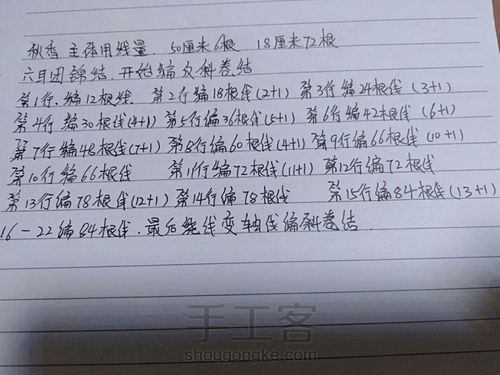 秋香 主体用线量. 50厘米6根 18厘米72根
六耳团锦结. 开始编反斜卷结
第1行.编12根线. 第2行编18根线(2+1) 第3行编24根线(3+1)
第4行 编30根线(4+1) 第5行编36根线(5+1) 第6行编42根线(6+1)
第7行编48根线(7+1) 第8行编60根线(4+1) 第9行编66根线(10+1)
第10行编66根线 第11行编72根线(11+1) 第12行编72根线
第13行编78根线(12+1) 第14行编78根线 第15行编84根线(13+1)
16-22编84根线.最后绕线变轴线编斜卷结.
手工客
shougongke.com